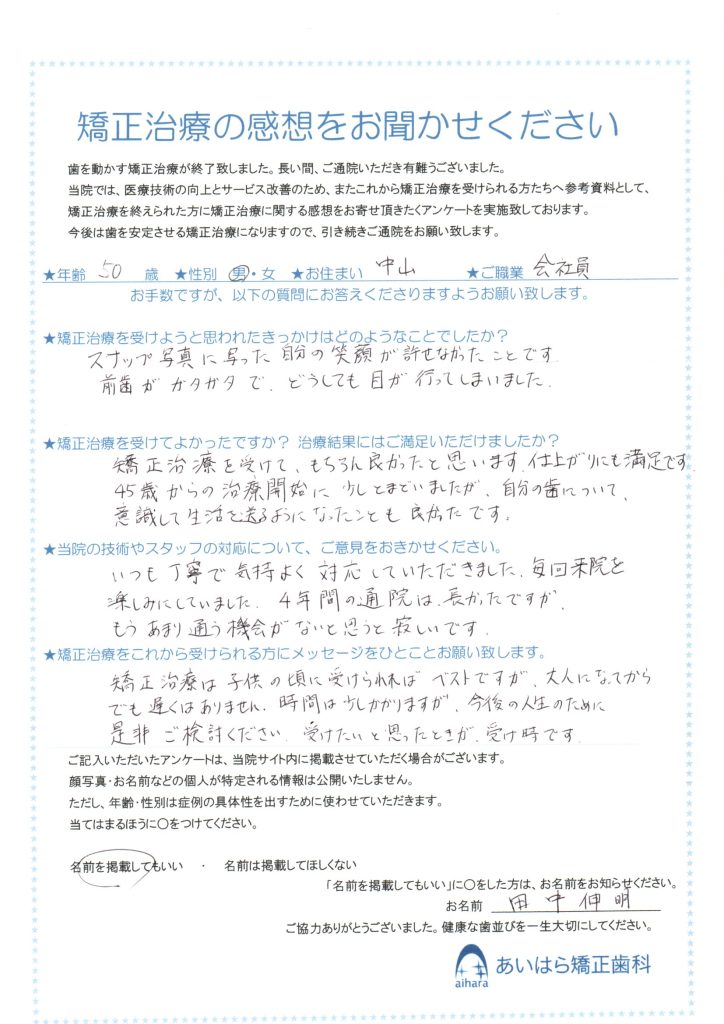 矯正治療の感想をお聞かせください
歯を動かす矯正治療が終了致しました。長い間、ご通院いただき有難うございました。
当院では、医療技術の向上とサービス改善のため、またこれから矯正治療を受けられる方たちへ参考資料として、
矯正治療を終えられた方に矯正治療に関する感想をお寄せ頂きたくアンケートを実施致しております。
今後は歯を安定させる矯正治療になりますので、引き続きご通院をお願い致します。
★年齢 50 歳 ★性別 男・女 ★お住まい 中山 ★ご職業 会社員
お手数ですが、以下の質問にお答えくださりますようお願い致します。
★矯正治療を受けようと思われたきっかけはどのようなことでしたか？
スナップ写真に写った自分の笑顔が許せなかったことです
前歯がガタガタで、どうしても目が行ってしまいました.
★矯正治療を受けてよかったですか？ 治療結果にはご満足いただけましたか？
矯正治療を受けて、もちろん良かったと思います.仕上がりにも満足です
45歳からの治療開始に少しとまどいましたが、自分の歯について、
意識して生活を送るようになったことも良かったです。
★当院の技術やスタッフの対応について、ご意見をおきかせください。
いつも丁寧で気持よく対応していただきました.毎回来院を
楽しみにしていました.4年間の通院は、長かったですが、
もうあまり通う機会がないと思うと寂しいです.
★矯正治療をこれから受けられる方にメッセージをひとことお願い致します。
矯正治療は子供の頃に受けられればベストですが、大人になってから
でも遅くはありません.時間は少しかかりますが、今後の人生のために
是非ご検討ください.受けたいと思ったときが、受け時です.
ご記入いただいたアンケートは、当院サイト内に掲載させていただく場合がございます。
顔写真・お名前などの個人が特定される情報は公開いたしません。
ただし、年齢・性別は症例の具体性を出すために使わせていただきます。
当てはまるほうに〇をつけてください。
名前を掲載してもいい ・ 名前は掲載してほしくない
「名前を掲載してもいい」に〇をした方は、お名前をお知らせください。
お名前 田中伸明
ご協力ありがとうございました。健康な歯並びを一生大切にしてください。
aihara あいはら矯正歯科